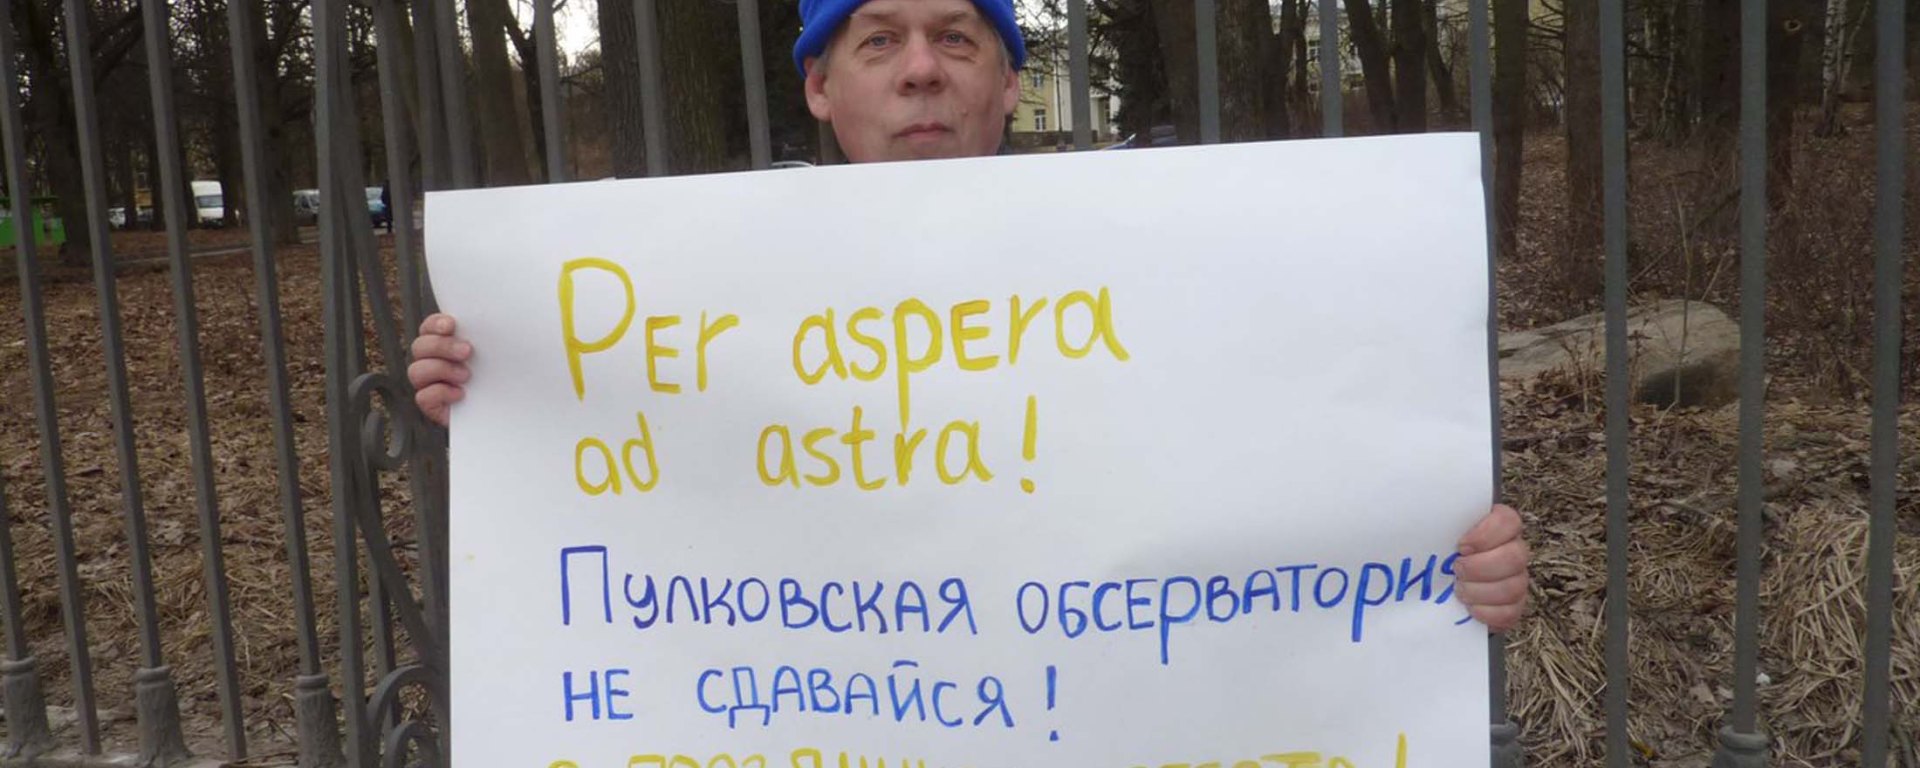 Per aspera
ad astra!
Пулковская обсерватория
не сдавайся!